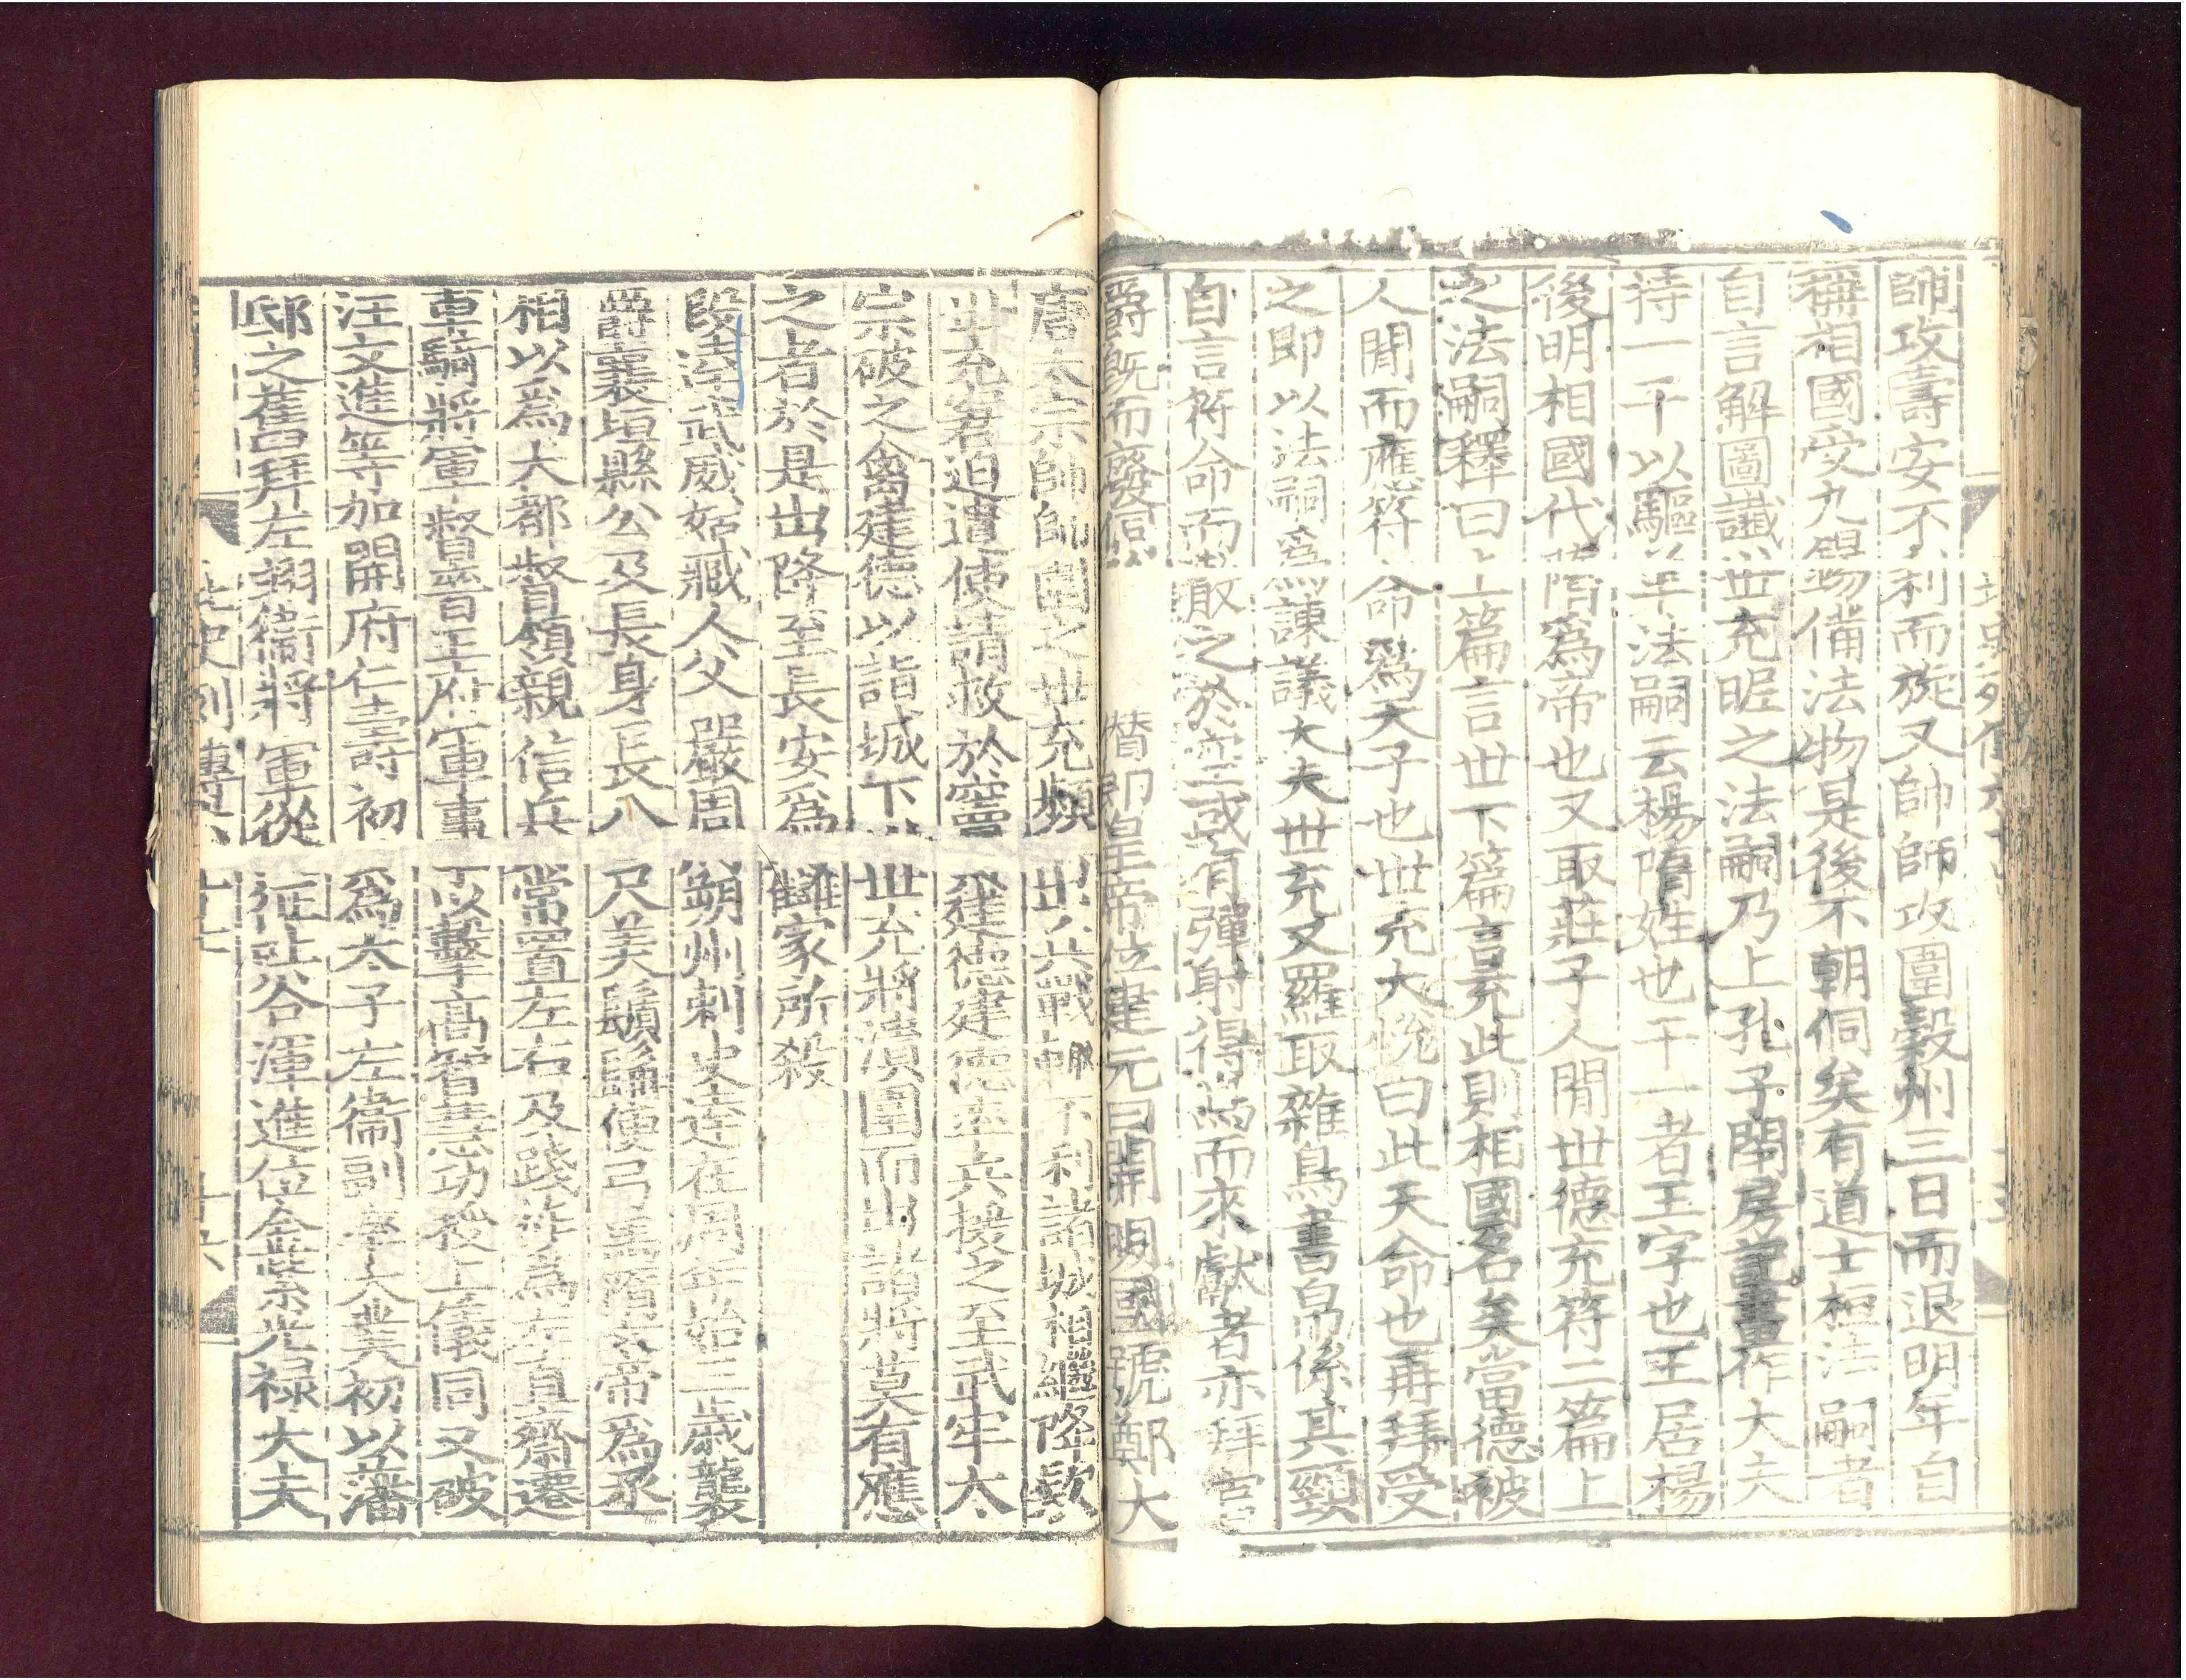 師攻壽安不利而旋又帥師攻圍穀州三日而退明年自
稱相國受九錫備法物是後不朝侗矣有道士桓法嗣者
自言解圖讖世充昵之法嗣乃上孔子閉房記畫作大夫
持一干以驅羊法嗣云楊隋姓也干一者王字也王居楊
後明相國代隋爲帝也又取莊子人閒世德充符二篇上
之法嗣釋曰上篇言世下篇言充此則相國名矣當德被
人閒而應符命爲天子也世充大悅曰此天命也再拜受
之即以法嗣爲諫議大夫世充又羅取雜鳥書帛係其頸
自言符命而散之於空或有彈射得鳥而來獻者亦拜官
爵旣而廢侗僭即皇帝位建元曰開明國號鄭大
唐太宗帥師圍之世充頻出兵戰輒不利諸城相繼降款
世充窘迫遣使請救於竇建德建德率兵援之至武牢太
宗破之禽建德以詣城下世充將潰圍而出諸將莫有應
之者於是出降至長安爲讎家所殺
段達武威姑臧人父嚴周朔州刺史達在周年始三歲襲
爵襄垣縣公及長身長八尺美鬚髯便弓馬隋文帝爲丞
相以爲大都督領親信兵常置左右及踐祚爲左直齋遷
車騎將軍督晉王府軍事以擊高智慧功授上儀同又破
汪文進等加開府仁壽初爲太子左衞副率大業初以藩
邸之舊拜左翊衞將軍從征吐谷渾進位金紫光祿大夫
北史列傳六